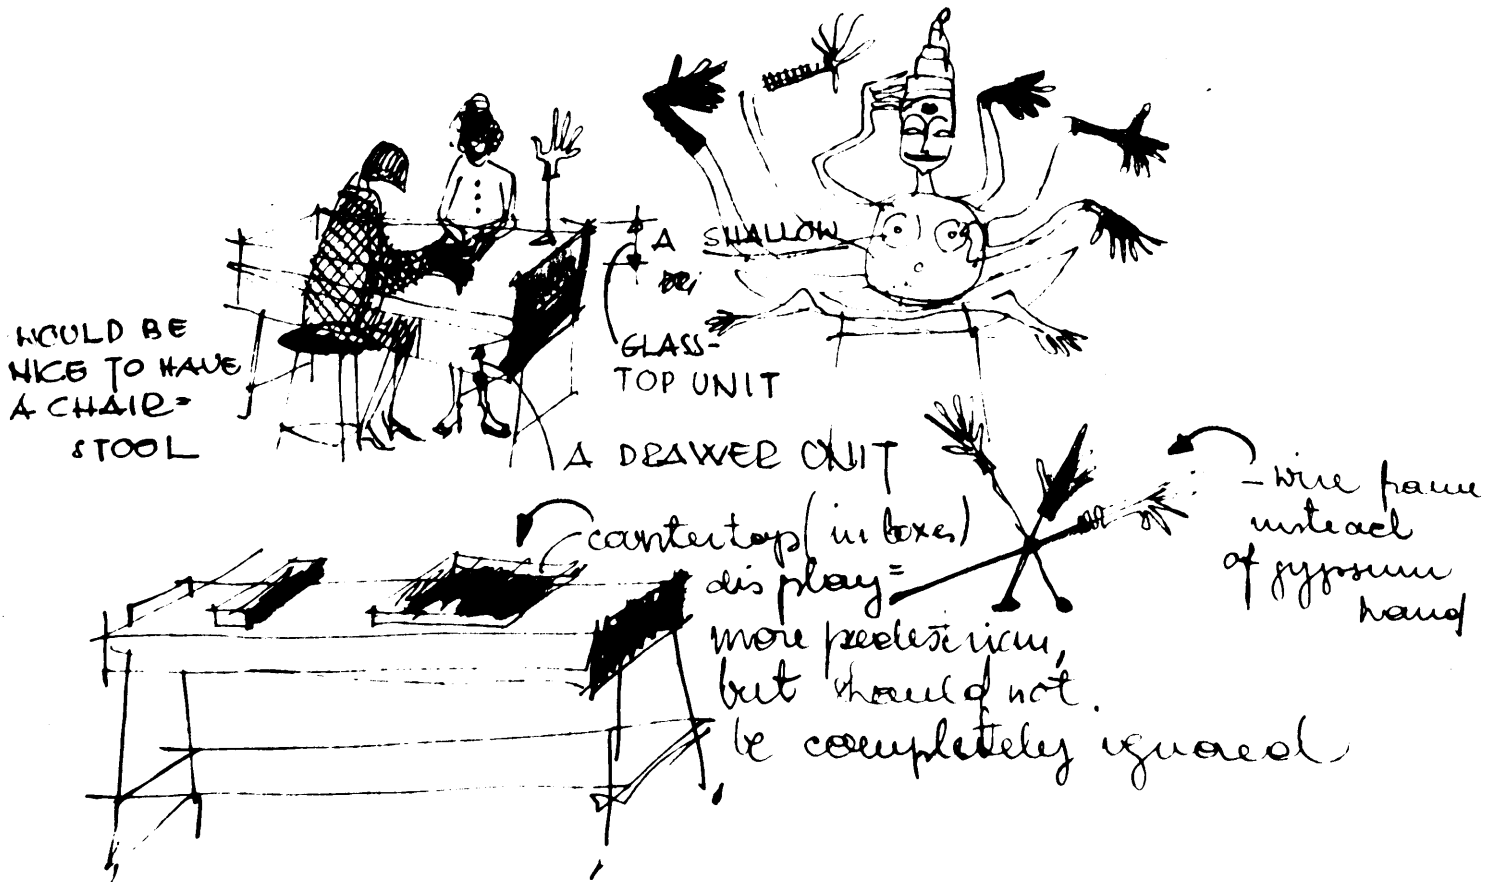 WOULD BE
NICE TO HAVE
A CHAIR=
STOOL
A SHALLOW
GLASS-
TOP UNIT
A DRAWER UNIT
countertop (in boxes)
display=
more pedestrian,
but should not
be completely ignored
- wire frame
instead
of gypsum
hand